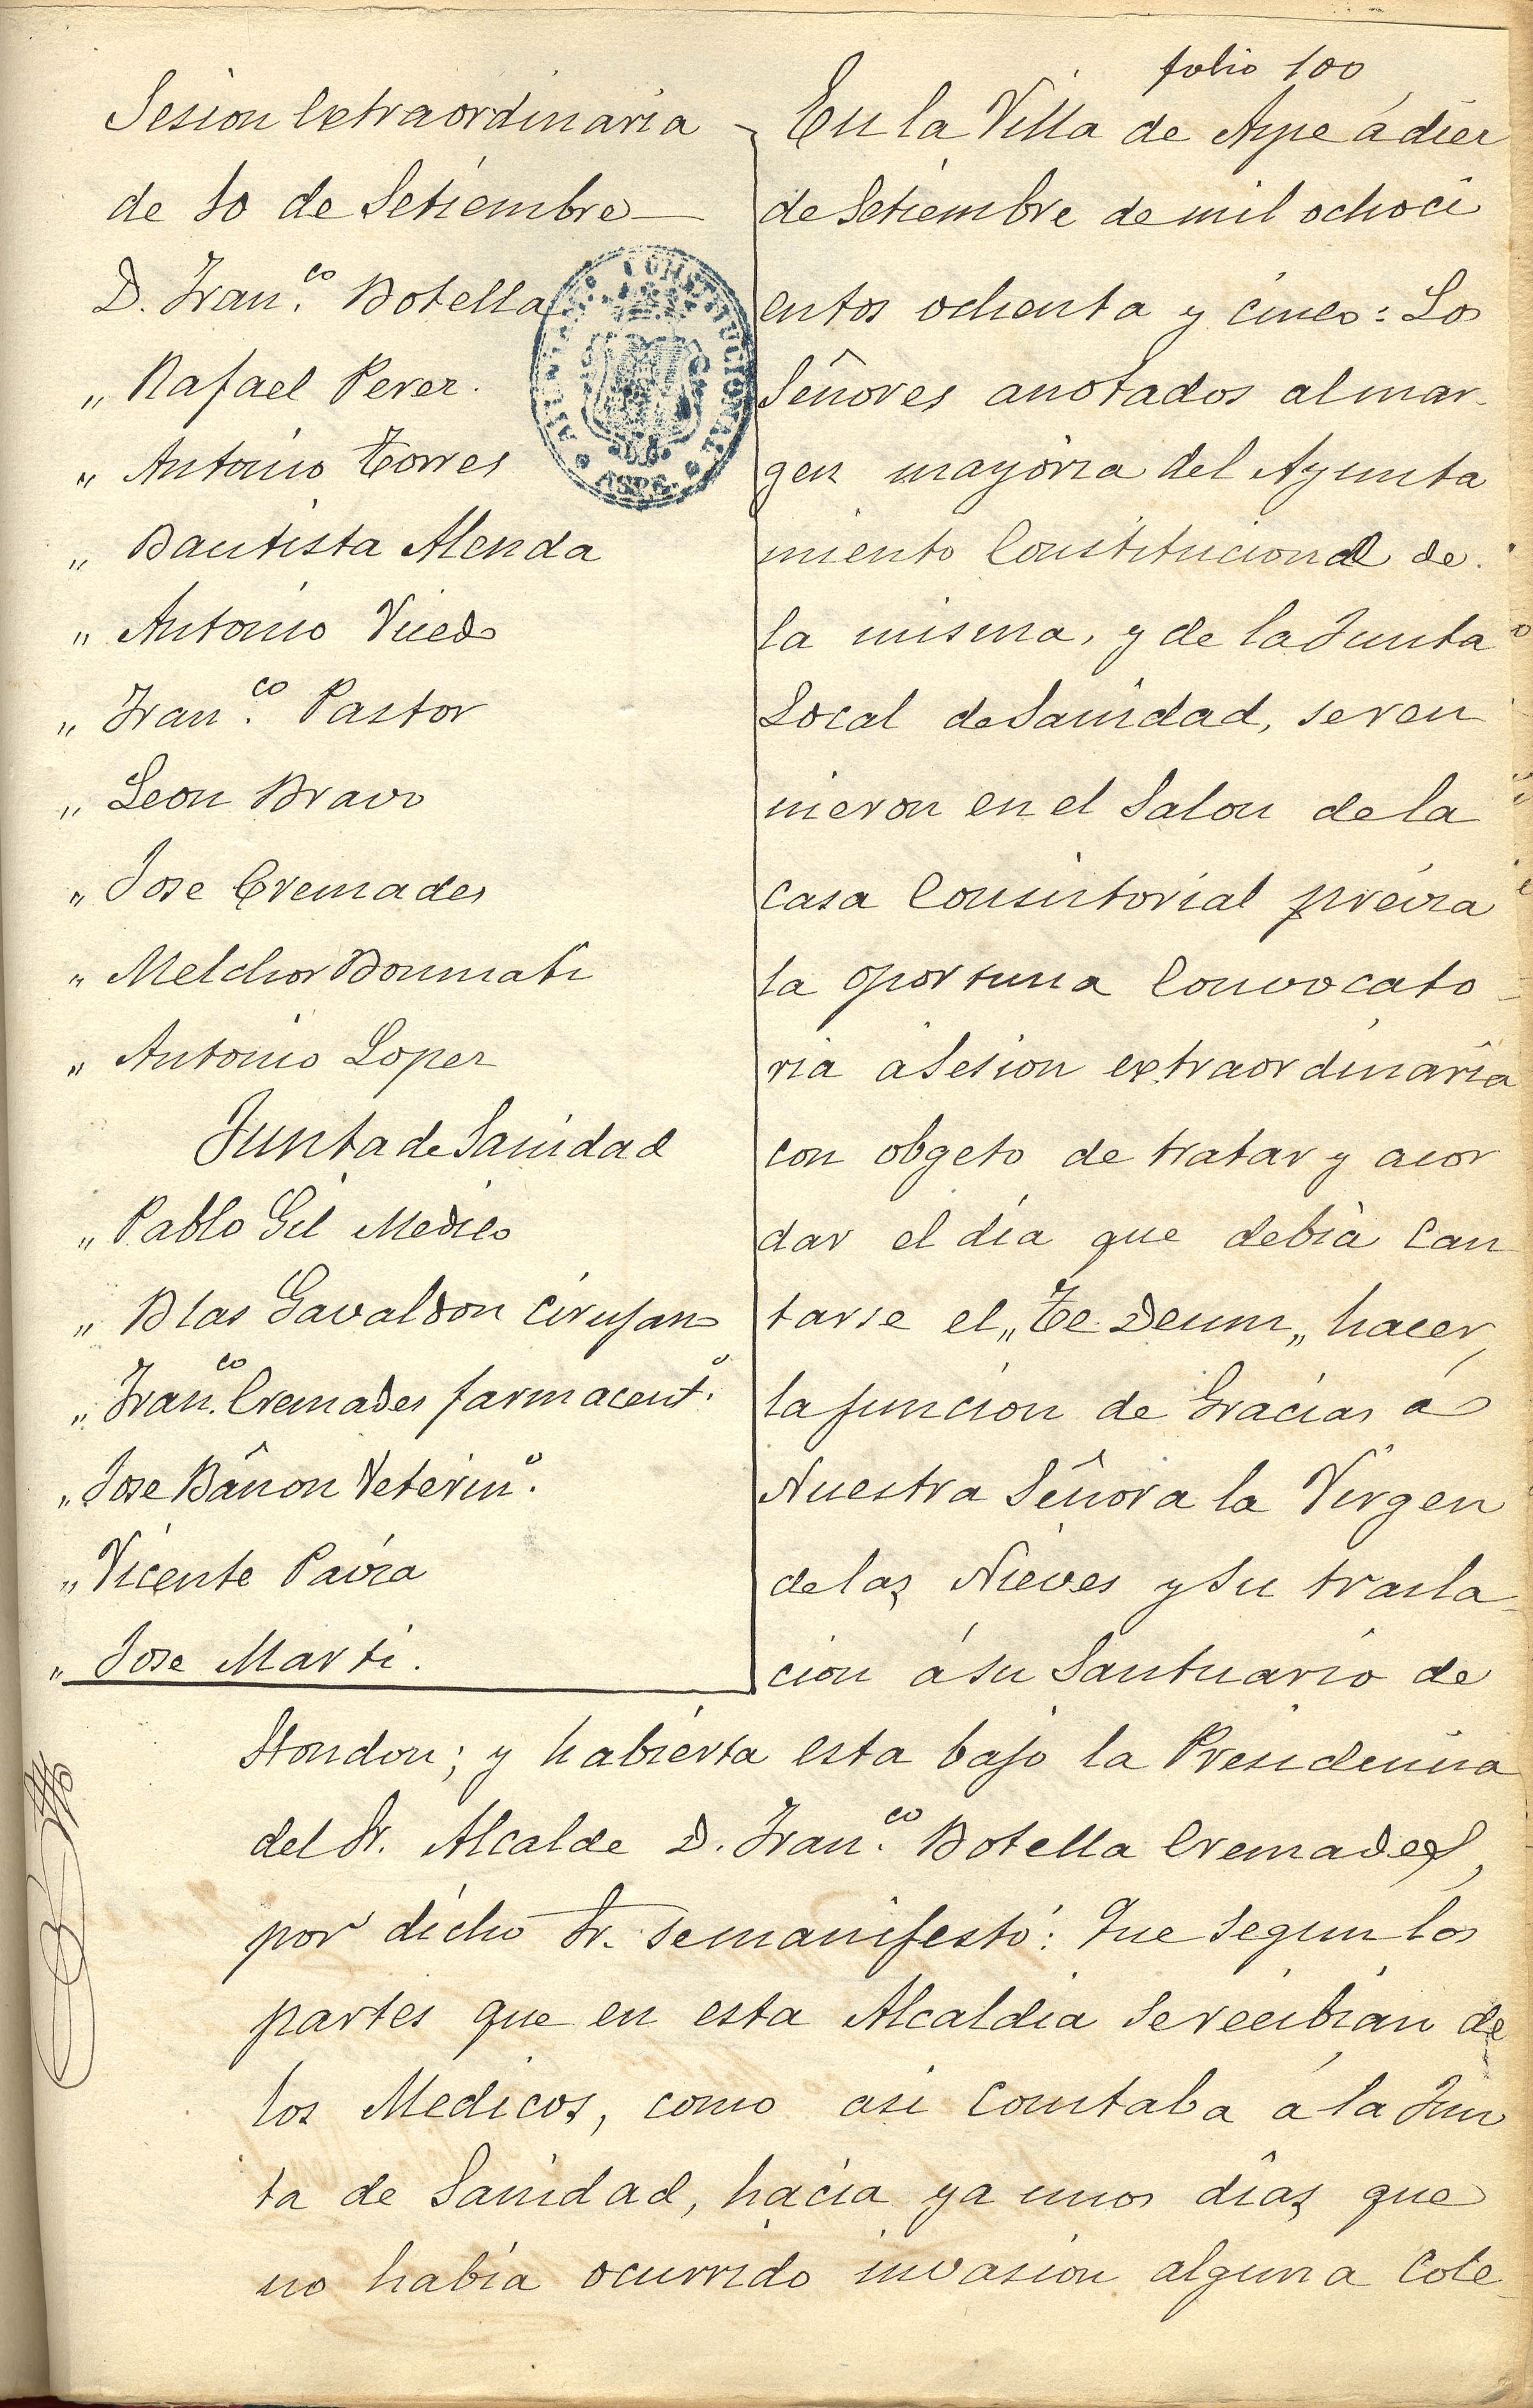 folio 100
Sesion extraordinaria
de 10 de Setiembre
D. Fran.co Botella
" Rafael Perez.
" Antonio Torres
" Bautista Alenda
" Antonio Vicedo
" Fran.co Pastor
" Leon Bravo
" Jose Cremades
" Melchor Bonmati
" Antonio Lopez
Junta de Sanidad
" Pablo Gil Medico
" Blas Gavaldon Cirujano
" Fran.co Cremades farmaceut.o
" Jose Bañon Veterin.o
" Vicente Pavia
" Jose Marti.
AYUNTAMIENTO CONSTITUCIONAL
ASPE
En la Villa de Aspe á diez
de Setiembre de mil ochoci
entos ochenta y cinco: Los
Señores anotados al mar-
gen mayoria del Ayunta
miento Constitucional de
la misma, y de la Junta
Local de Sanidad, se reu
nieron en el Salon de la
Casa Consistorial prévia
la oportuna Convocato-
ria á Sesion extraordinaria
con obgeto de tratar y acor
dar el día que debia Can
tarse el "Te Deum" hacer,
la funcion de Gracias á
Nuestra Señora la Virgen
de las Nieves y su trasla-
cion á su Santuario de
Hondon; y habierta esta bajo la Presidencia
del Sr. Alcalde D. Fran.co Botella Cremades,
por dicho Sr. se manifestó: Que segun los
partes que en esta Alcaldia se recibian de
los Medicos, como asi Constaba á la Jun
ta de Sanidad, hacia ya unos dias que
no habia ocurrido invasion alguna Cole-